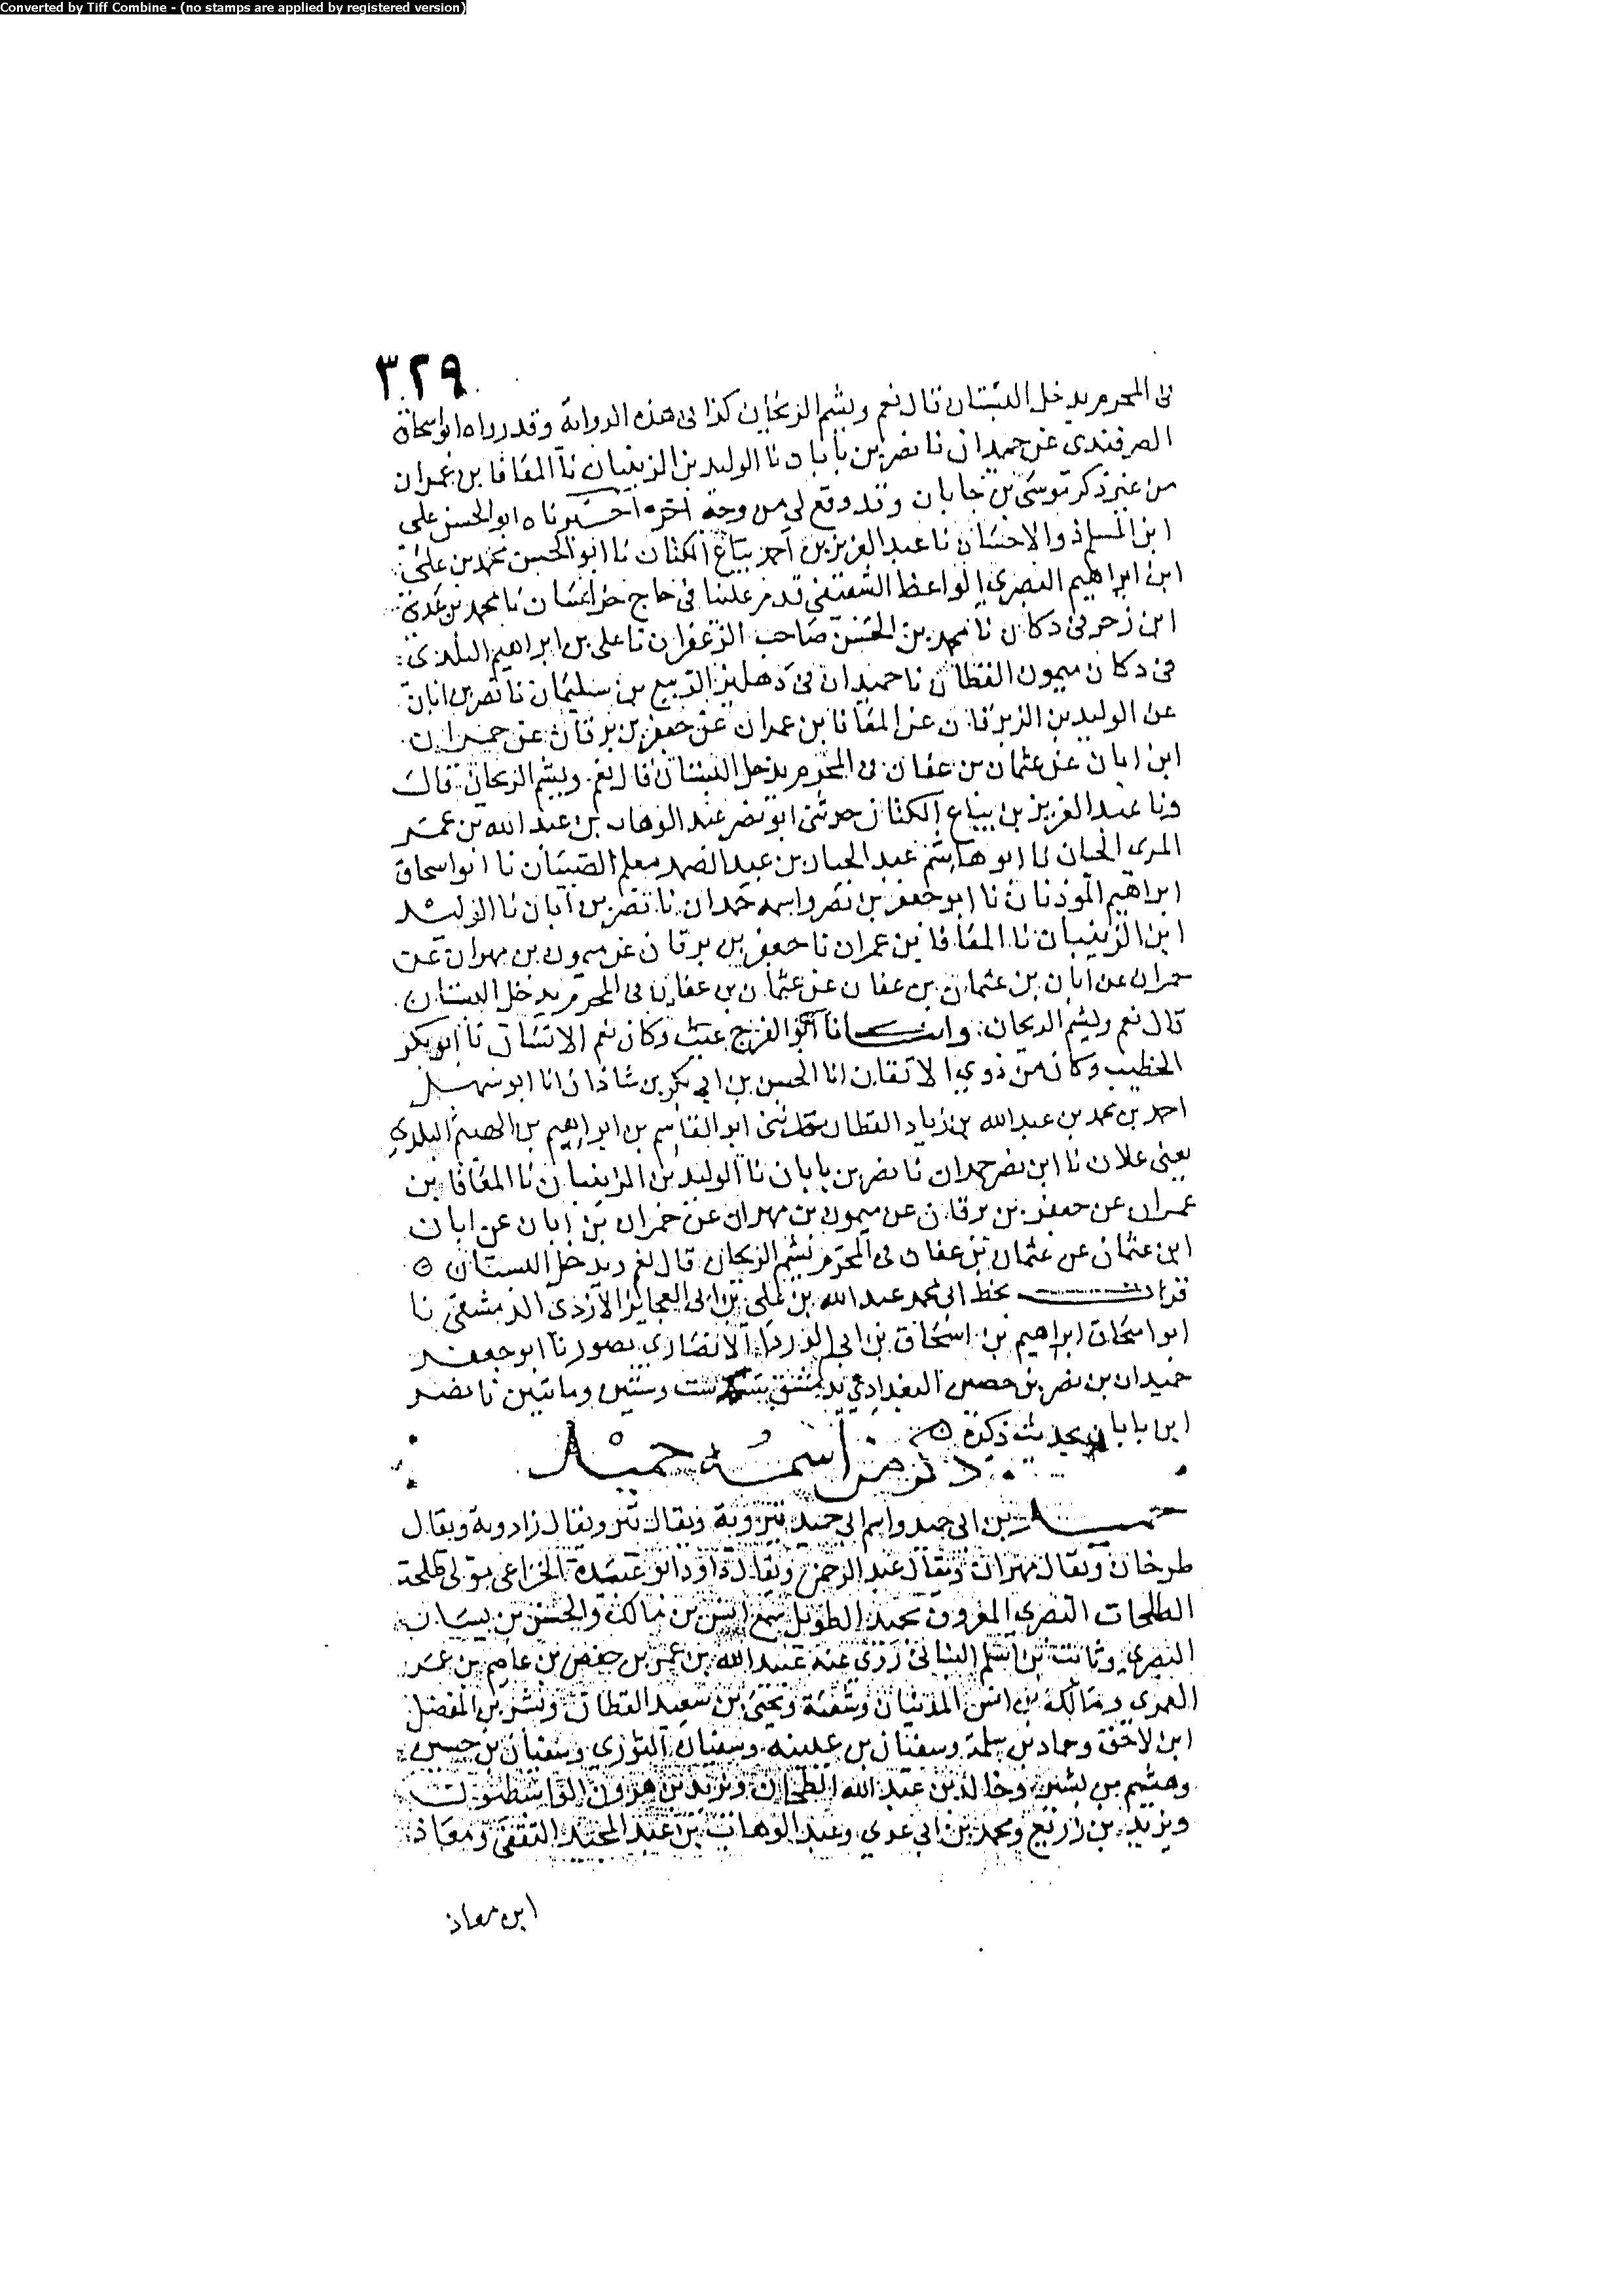 Converted by Tiff Combine - (no stamps are applied by registered version)
٣٢٩
في المحرم يدخل البستان قال نعم ويشم الريحان كذا في هذه الرواية وقد رواه ابو اسحاق
الصرفندي عن حميدان نا نصر بن بابان نا الوليد بن الزينبان نا المعافا بن عمران
من غير ذكر موسى بن جابان وقد وقع لي من وجه اخر اخبرناه ابو الحسن علي
ابن المسلم ذو الاحسان نا عبد العزيز بن احمد بياع الكتان نا ابو الحسن محمد بن علي
ابن ابراهيم البصري الواعظ قدم علينا في حاج خراسان نا محمد بن عدي
ابن زحر في دكان نا محمد بن الحسن صاحب الزعفران نا علي بن ابراهيم البلدي
في دكان ميمون القطان نا حميدان في دهليز الربيع بن سليمان نا نصر بن ابان
عن الوليد بن الزبرقان عن المعافا بن عمران عن جعفر بن برقان عن حمران
ابن ابان عن عثمان بن عفان في المحرم يدخل البستان قال نعم ويشم الريحان قال
ونا عبد العزيز بن بياع الكتان حدثني ابو نصر عبد الوهاب بن عبد الله بن عمر
المري الجبان نا ابو هاشم عبد الجبار بن عبد الصمد معلم الصبيان نا ابو اسحاق
ابراهيم نا ابو جعفر بن نصر واسمه حمدان نا نصر بن ابان نا الوليد
ابن الزينبان نا المعافا بن عمران نا جعفر بن برقان عن ميمون بن مهران عن
حمران عن ابان بن عثمان بن عفان عن عثمان بن عفان في المحرم يدخل البستان
قال نعم ويشم الريحان وانبانا ابو الفرج غيث وكان نعم الانسان نا ابو بكر
الخطيب وكان من ذوي الاتقان انا الحسن بن ابي بكر بن شاذان انا ابو سهل
احمد بن محمد بن عبد الله بن زياد القطان حدثني ابو القاسم بن ابراهيم بن الهيثم البلدي
يعني علان نا ابن نصر حمدان نا نصر بن بابان نا الوليد بن الزينبان نا المعافا بن
عمران عن جعفر بن برقان عن ميمون بن مهران عن حمران بن ابان عن ابان
ابن عثمان عن عثمان بن عفان في المحرم يشم الريحان قال نعم ويدخل البستان ٥
قرات بخط ابي محمد عبد الله بن علي بن ابي العجايز الازدي الدمشقي نا
ابو اسحاق ابراهيم بن اسحاق بن ابي الدرداء الانصاري بصور نا ابو جعفر
حميدان بن نصر بن حصين البغدادي بدمشق سنة ست وستين ومايتين نا نصر
ابن بابان بحديث ذكره ٥
ذكر من اسمه حميد
حميد بن ابي حميد واسم ابي حميد تيرويه ويقال تير ويقال زادويه ويقال
طرخان ويقال مهران ويقال عبد الرحمن ويقال داود ابو عبيدة الخزاعي مولى طلحة
الطلحات البصري المعروف بحميد الطويل سمع انس بن مالك والحسن بن يسار
البصري وثابت بن اسلم البناني روى عنه عبيد الله بن عمر بن حفص بن عاصم بن عمر
العمري ومالك بن انس المدنيان وشعبة ويحيى بن سعيد القطان وبشر بن المفضل
ابن لاحق وحماد بن سلمة وسفيان بن عيينه وسفيان الثوري وسفيان بن حسين
وهشيم بن بشير وخالد بن عبد الله الطحان ويزيد بن هرون الواسطيون
ويزيد بن زريع ومحمد بن ابي عدي وعبد الوهاب بن عبد المجيد الثقفي ومعاذ
ابن معاذ